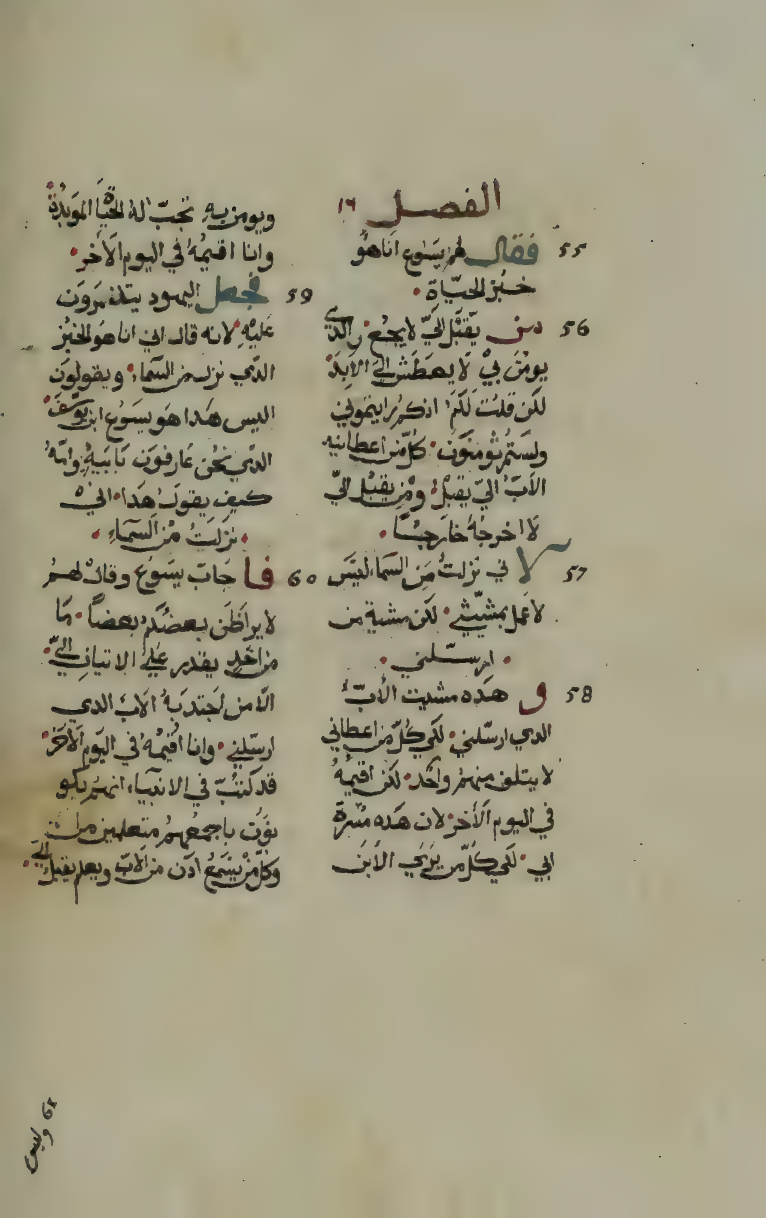 الفصل ١٦
55 فقال لهم يسوع انا هو
خبز الحياة
56 من يقبل اليّ لا يجوع والدي
يومن بي لا يعطش الي الابد
لكن قلت لكم انكم رايتموني
ولستم تومنون كل من اعطانيه
الاب اليّ يقبل ومن يقبل اليّ
لا اخرجه خارجًا
57 لاني نزلت من السما ليس
لاعمل بمشيتي لكن مشية من
ارسلني
58 و هده مشيت الاب
الدي ارسلني لكي كل من اعطاني
لا يتلف منهم واحد لكن اقيمه
في اليوم الاخر لان هده مسرة
ابي لكي كل من يري الابن
ويومن به تجب له الحياة الموبدة
وانا اقيمه في اليوم الاخر
59 فجعل اليهود يتدمرون
عليه لانه قال اني انا هو الخبز
الدي نزل من السماء ويقولون
اليس هدا هو يسوع ابن يوسف
الدي نحن عارفون بابيه وامه
كيف يقول هدا اني
نزلت من السماء
60 فاجاب يسوع وقال لهم
لا يراطن بعضكم بعضًا ما
من احد يقدر علي الاتيان اليّ
الا من اجتدبه الاب الدي
ارسلني وانا اقيمه في اليوم الاخر
قد كتب في الانبياء انهم يكو
نون باجمعهم متعلمين من الله
وكل من يسمع ادن من الاب ويعلم يقبل اليّ